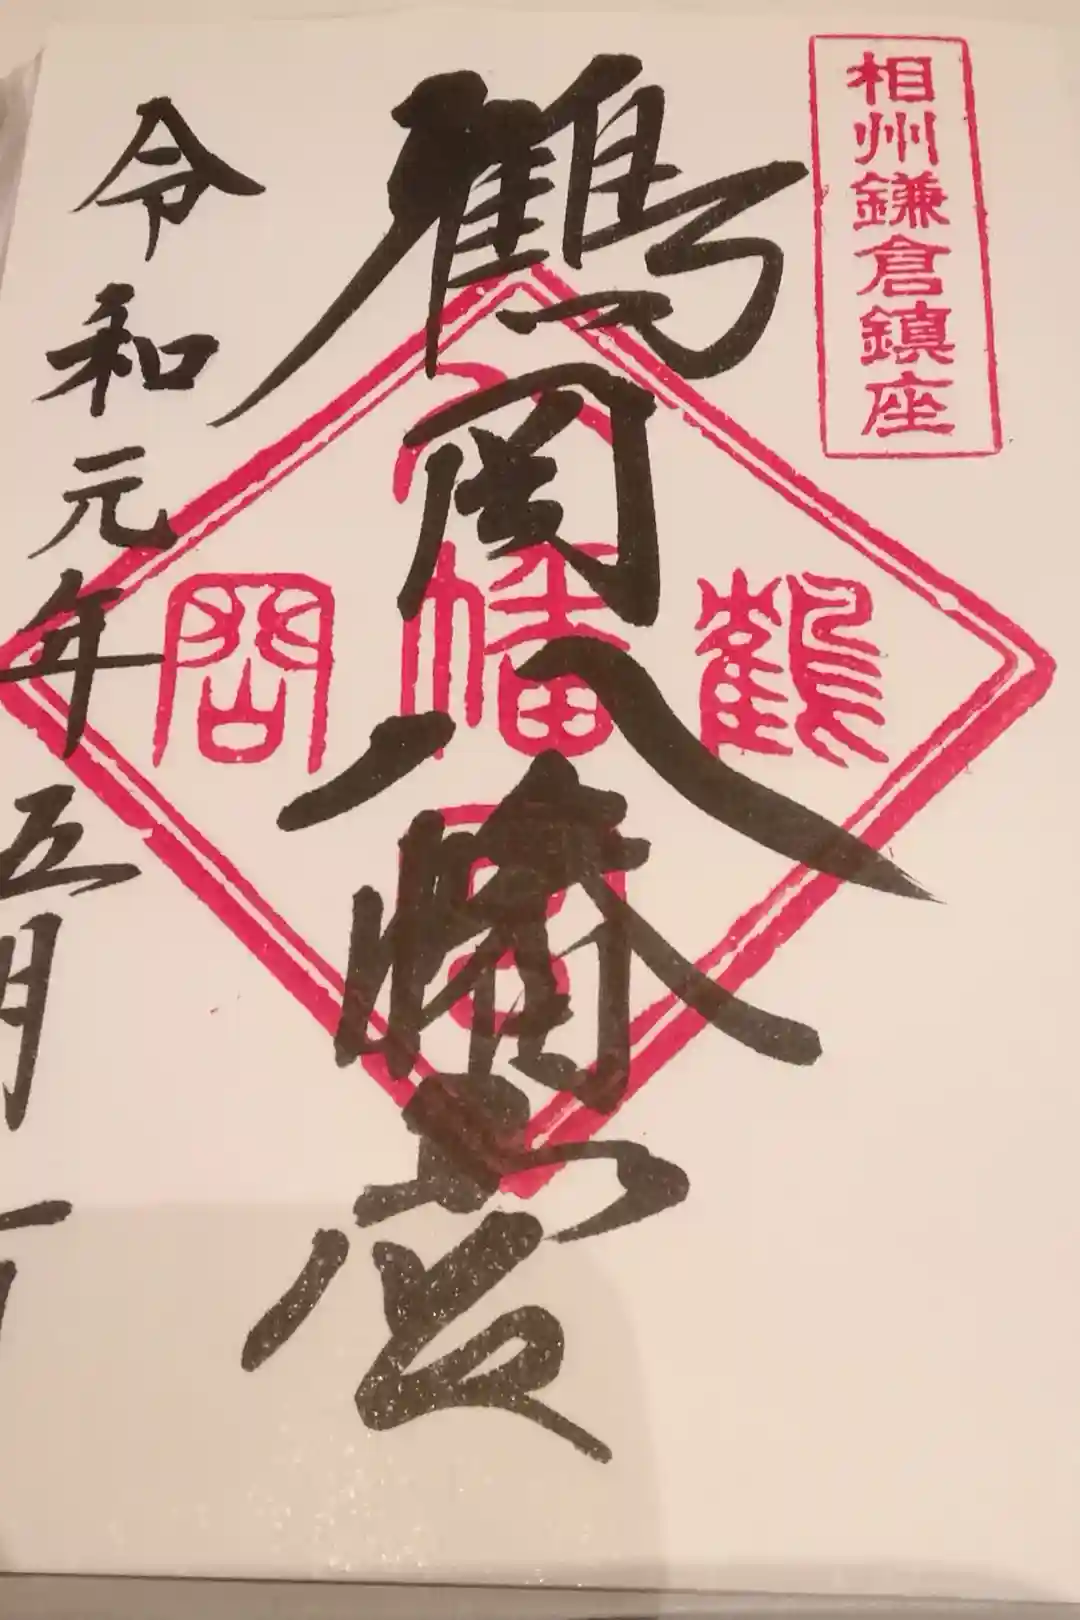 相州鎌倉鎮座
鶴岡八幡宮
鶴
幡
岡
令和元年五月